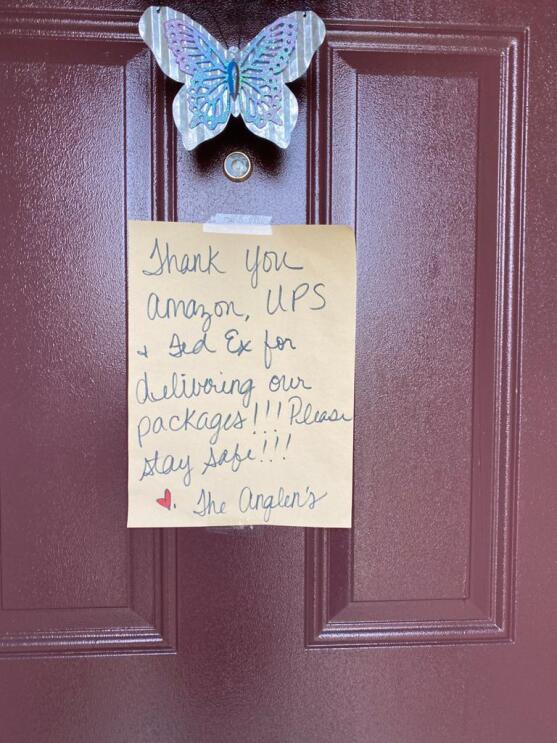 Thank you
Amazon, UPS
+ Fed Ex for
delivering our
packages!!! Please
stay safe!!!
♥. The Anglen's